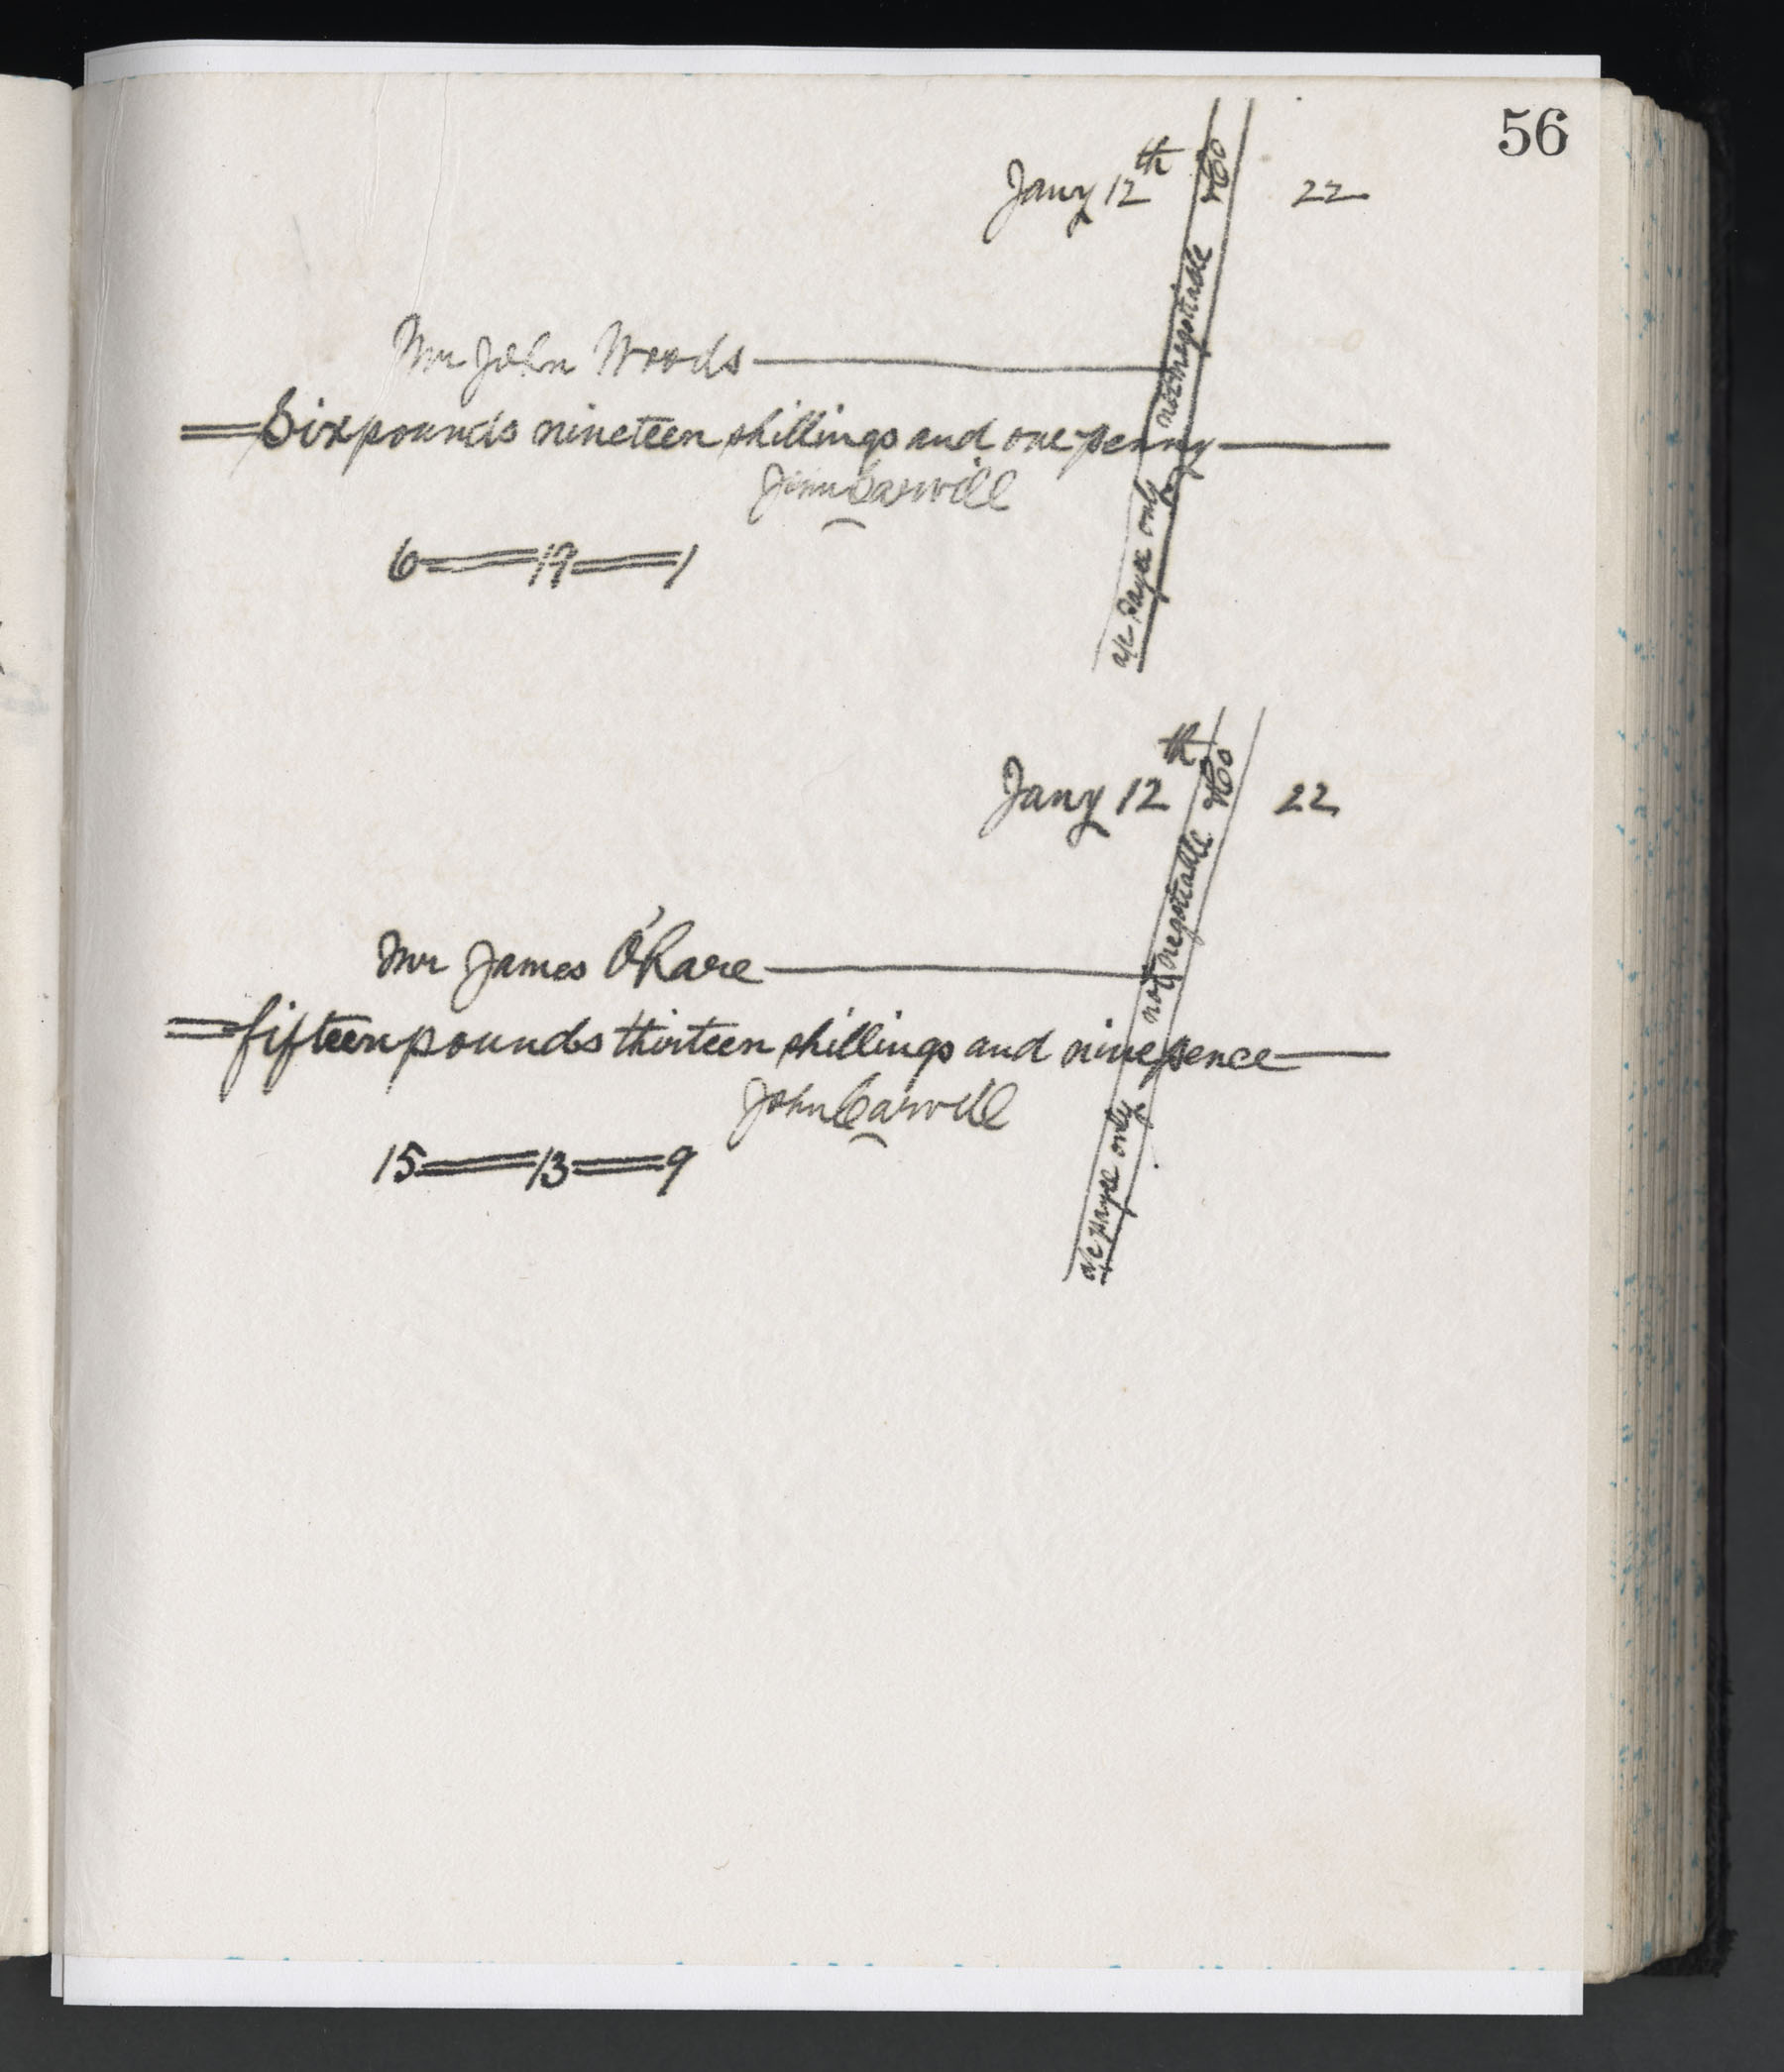 56
Jany 12th 22
& Co
not negotiable
a/c payee only
Mr John Woods
Six pounds nineteen shillings and one penny
John Carvill
6 19 1
Jany 12th 22
& Co
not negotiable
a/c payee only
Mr James O'Hare
fifteen pounds thirteen shillings and nine pence
John Carvill
15 13 9